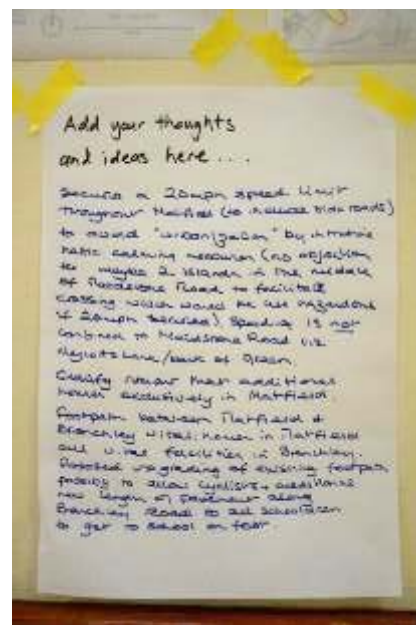 Add your thoughts
and ideas here ....
Secure a 20mph speed limit
throughout Matfield (to include side roads)
to avoid "urbanization" by intrusive
traffic calming measures (no objection
to maybe 2 islands in the middle
of Maidstone Road to facilitate
crossing which would be less hazardous
if 20mph secured) Speeding is not
confined to Maidstone Road viz
lane/back of Green.
Clarify rumour that additional
houses exclusively in Matfield.
Footpath between Matfield &
Brenchley vital: houses in Matfield
and vital facilities in Brenchley.
upgrading of existing footpath
possibly to allow cyclists + additional
new length of pavement along
Brenchley Road to aid schoolchildren
to get to school on foot